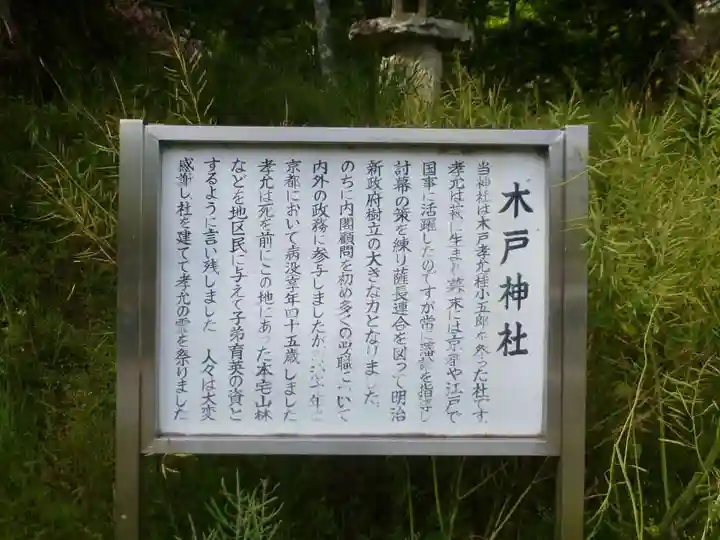 木戸神社
当神社は木戸孝允桂小五郎を祭った社です
孝允は萩に生まれ幕末には京都や江戸で
国事に活躍したのですが常に藩論を指導し
討幕の策を練り薩長連合を図って明治
新政府樹立の大きな力となりました
のちに内閣顧問を初め多くの要職について
内外の政務に参与しましたが明治十年に
京都において病没享年四十五歳でしました
孝允は死を前にこの地にあった本宅山林
などを地区民に与えて子弟育英の資と
するように言い残しました 人々は大変
感謝し社を建てて孝允の霊を祭りました